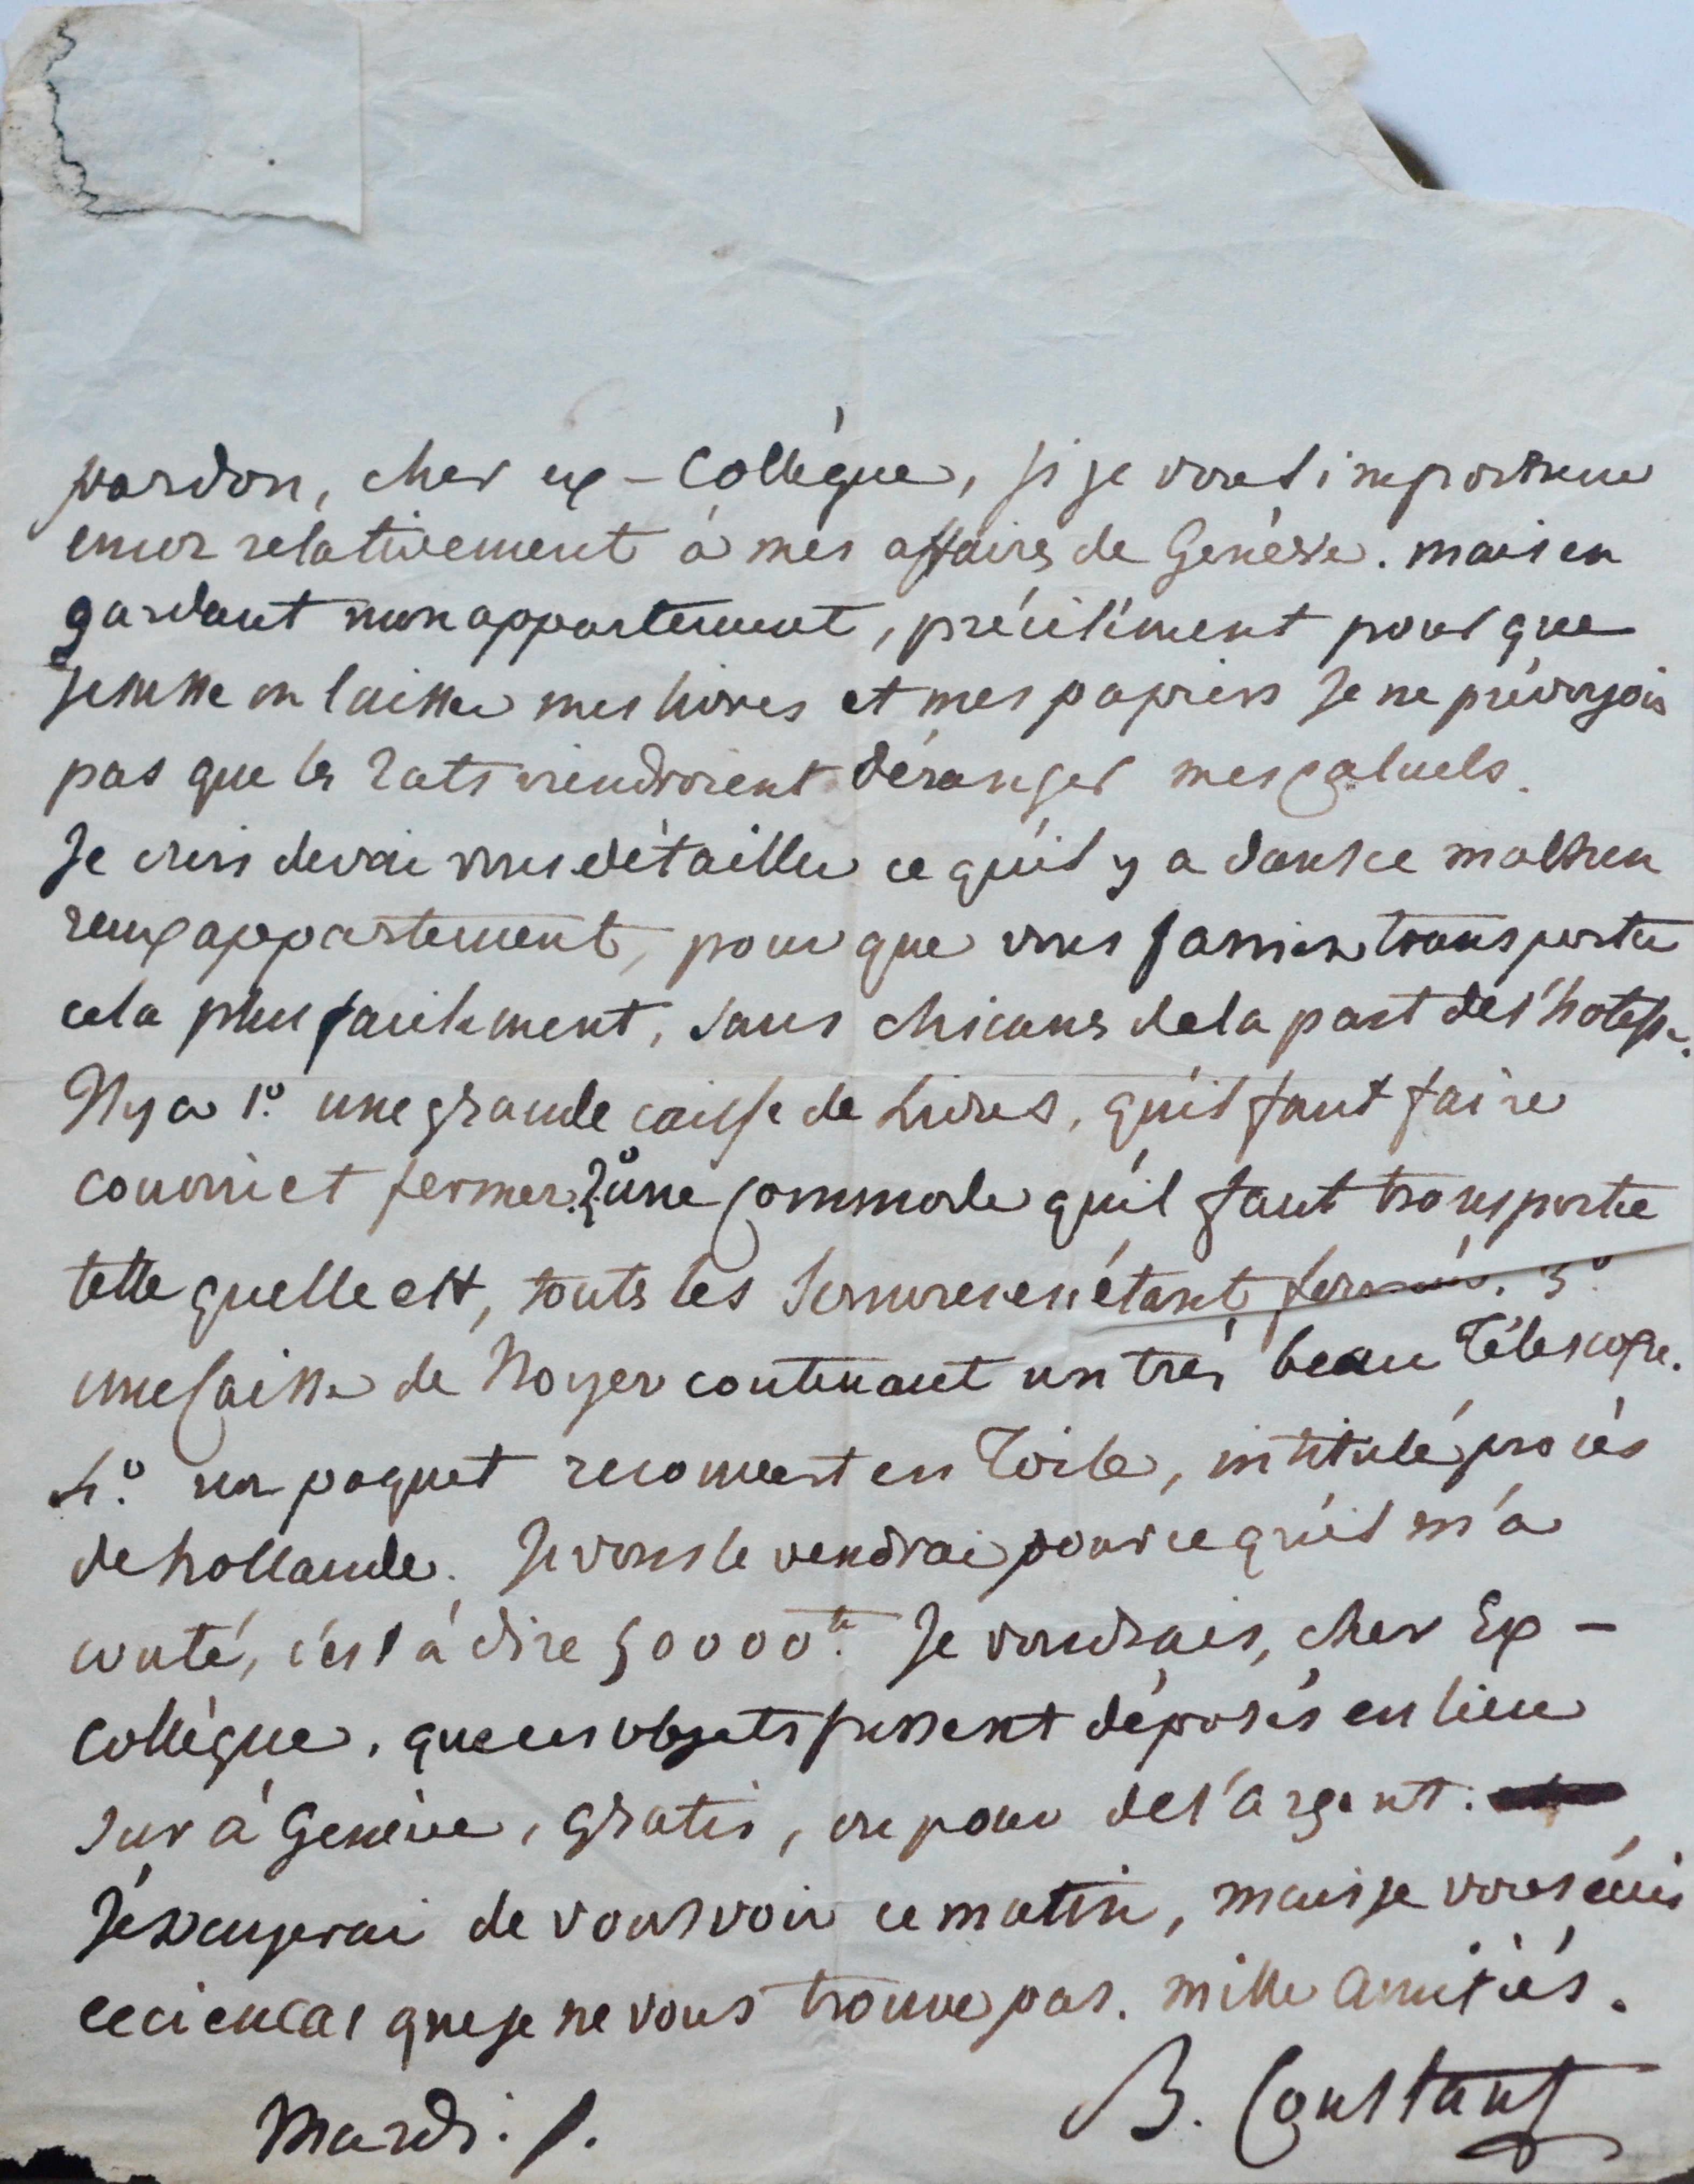 pardon, cher ex-Collègue, si je vous importune
encor relativement à mes affaires de Genève. mais en
gardant mon appartement, précisément pour que
je pusse en laisser mes livres et mes papiers je ne prévoyois
pas que les rats viendroient déranger mes calculs.
Je crois devoir vous détailler ce qu'il y a dans ce malheu
reux appartement, pour que vous fassiez transporter
cela plus facilement, sans chicanes de la part de l'hotesse.
Il y a 1.º une grande caisse de Livres, qu'il faut faire
couvrir et fermer. 2.º une commode qu'il faut transporter
telle quelle est, toutes les serrures en étant fermées. 3.º
une caisse de Noyer contenant un très beau Télescope.
4.º un paquet recouvert en Toile, intitulé procès
de hollande. Je vous le vendrai pour ce qu'il m'a
couté, c'est à dire 50000 ₶. Je voudrais, cher Ex-
collègue, que ces objets fussent déposés en lieu
sur à Genève, gratis, ou pour de l'argent.
J'essayerai de vous voir ce matin, mais je vous écris
ceci en cas que je ne vous trouve pas. mille amitiés.
B. Constant
Mardi.